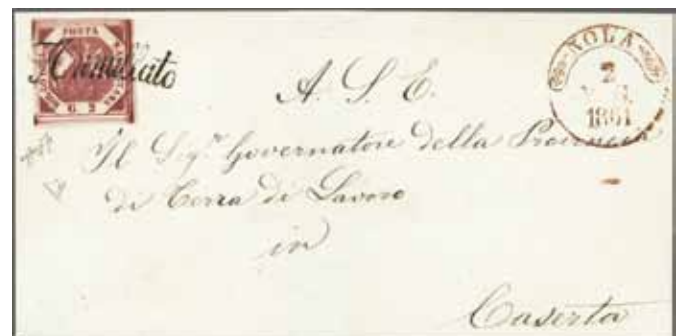 POSTA
G. 2
Annullato
NOLA
2
1861
A. S. E.
Il Sig.r Governatore della Provincia
di Terra di Lavoro
in
Caserta